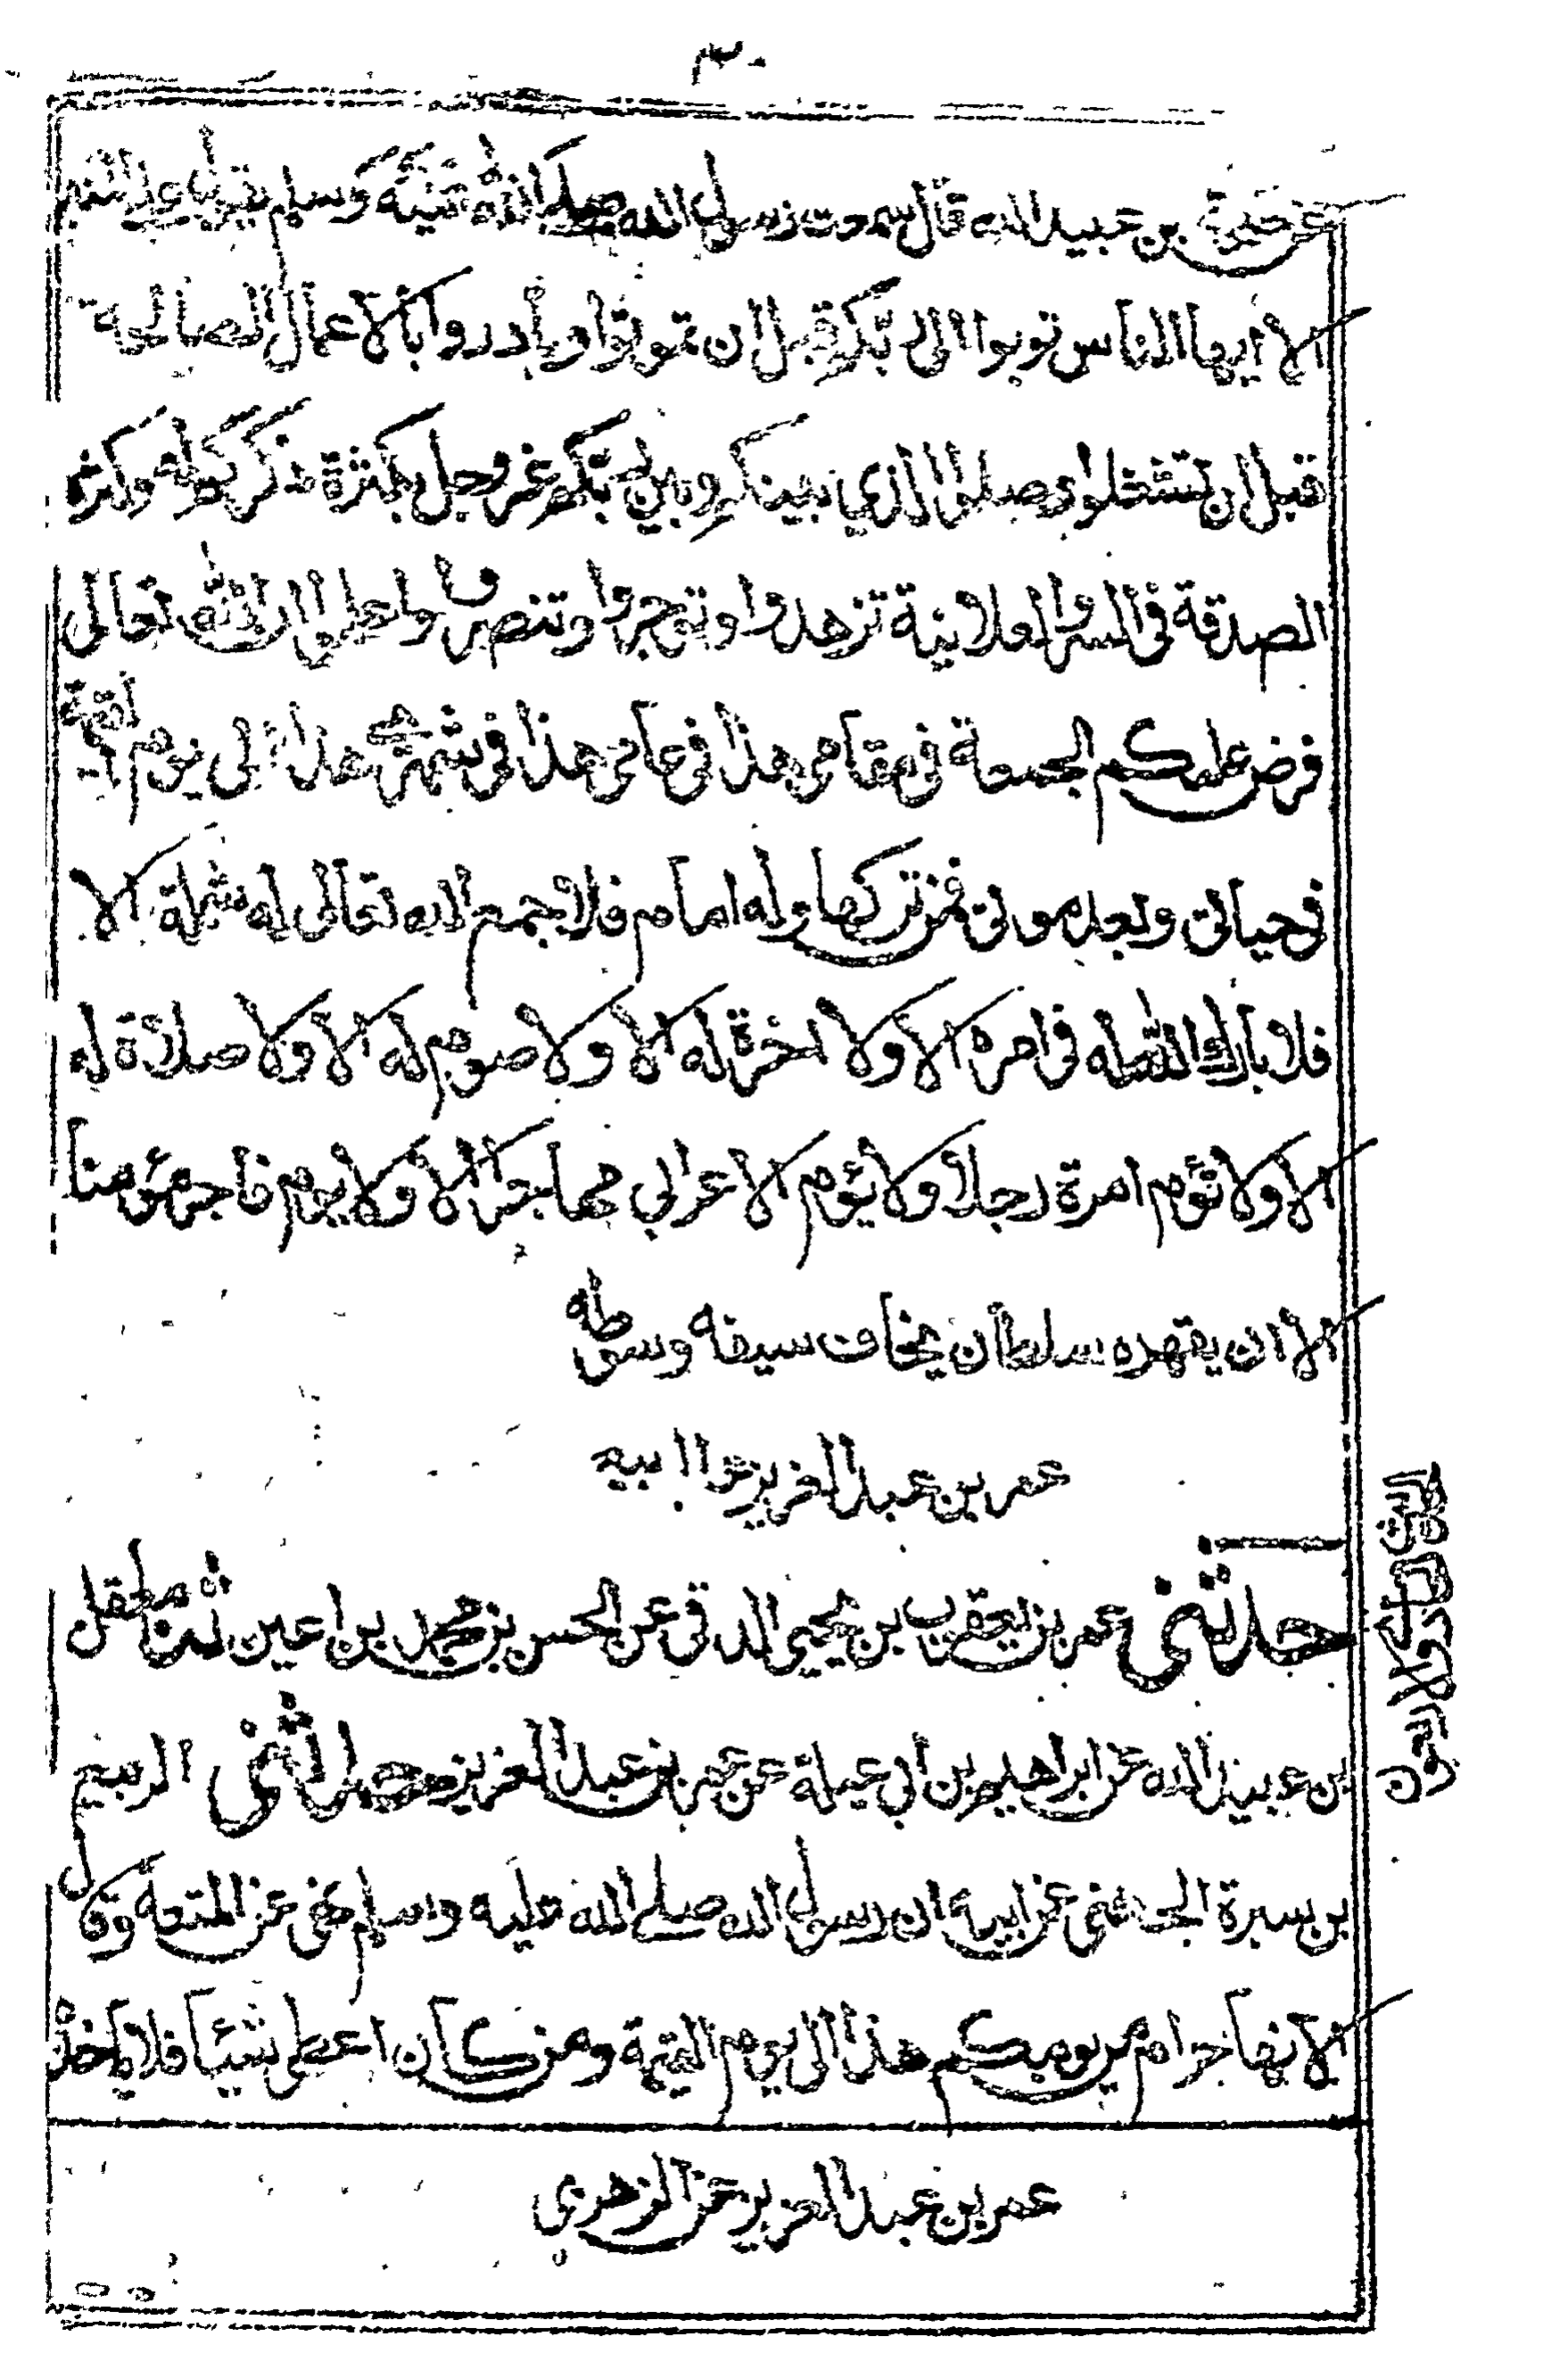 ٣٠
بن عبيد الله قال سمعت رسول الله صلى الله عليه وسلم يقول على المنبر
الا ايها الناس توبوا الى ربكم قبل ان تموتوا وبادروا بالاعمال الصالحة
قبل ان تشغلوا وصلوا الذي بينكم وبين ربكم عز وجل بكثرة ذكركم له وكثرة
الصدقة في السر والعلانية تزهدوا وتوجروا وتنصروا واعلموا ان الله تعالى
فرض عليكم الجمعة في مقامي هذا في عامي هذا في شهري هذا الى يوم القيمة
في حياتي وبعد موتي فمن تركها وله امام فلا جمع الله تعالى له شمله الا
فلا بارك الله له في امره الا ولا اخرة له الا ولا صوم له الا ولا صلاة له
الا ولا تؤم امرة رجلا ولا يؤم الاعرابي مهاجرا الا ولا يوم فاجر مؤمنا
الا ان يقهره سلطان يخاف سيفه وسوطه
عمر بن عبد العزيز ابيه
حدثني عمر بن يعقوب بن يحيى الدقي عن الحسن بن محمد بن اعين ثنا معقل
بن عبيد الله عن ابراهيم بن ابي عبلة عن عمر بن عبد العزيز حدثني الربيع
بن سبرة الجهني عن ابيه ان رسول الله صلى الله عليه وسلم نهى عن المتعة وقال
الا انها حرام من يومكم هذا الى يوم القيمة ومن كان اعطى شيئا فلا ياخذ
عمر بن عبد العزيز عن الزهري